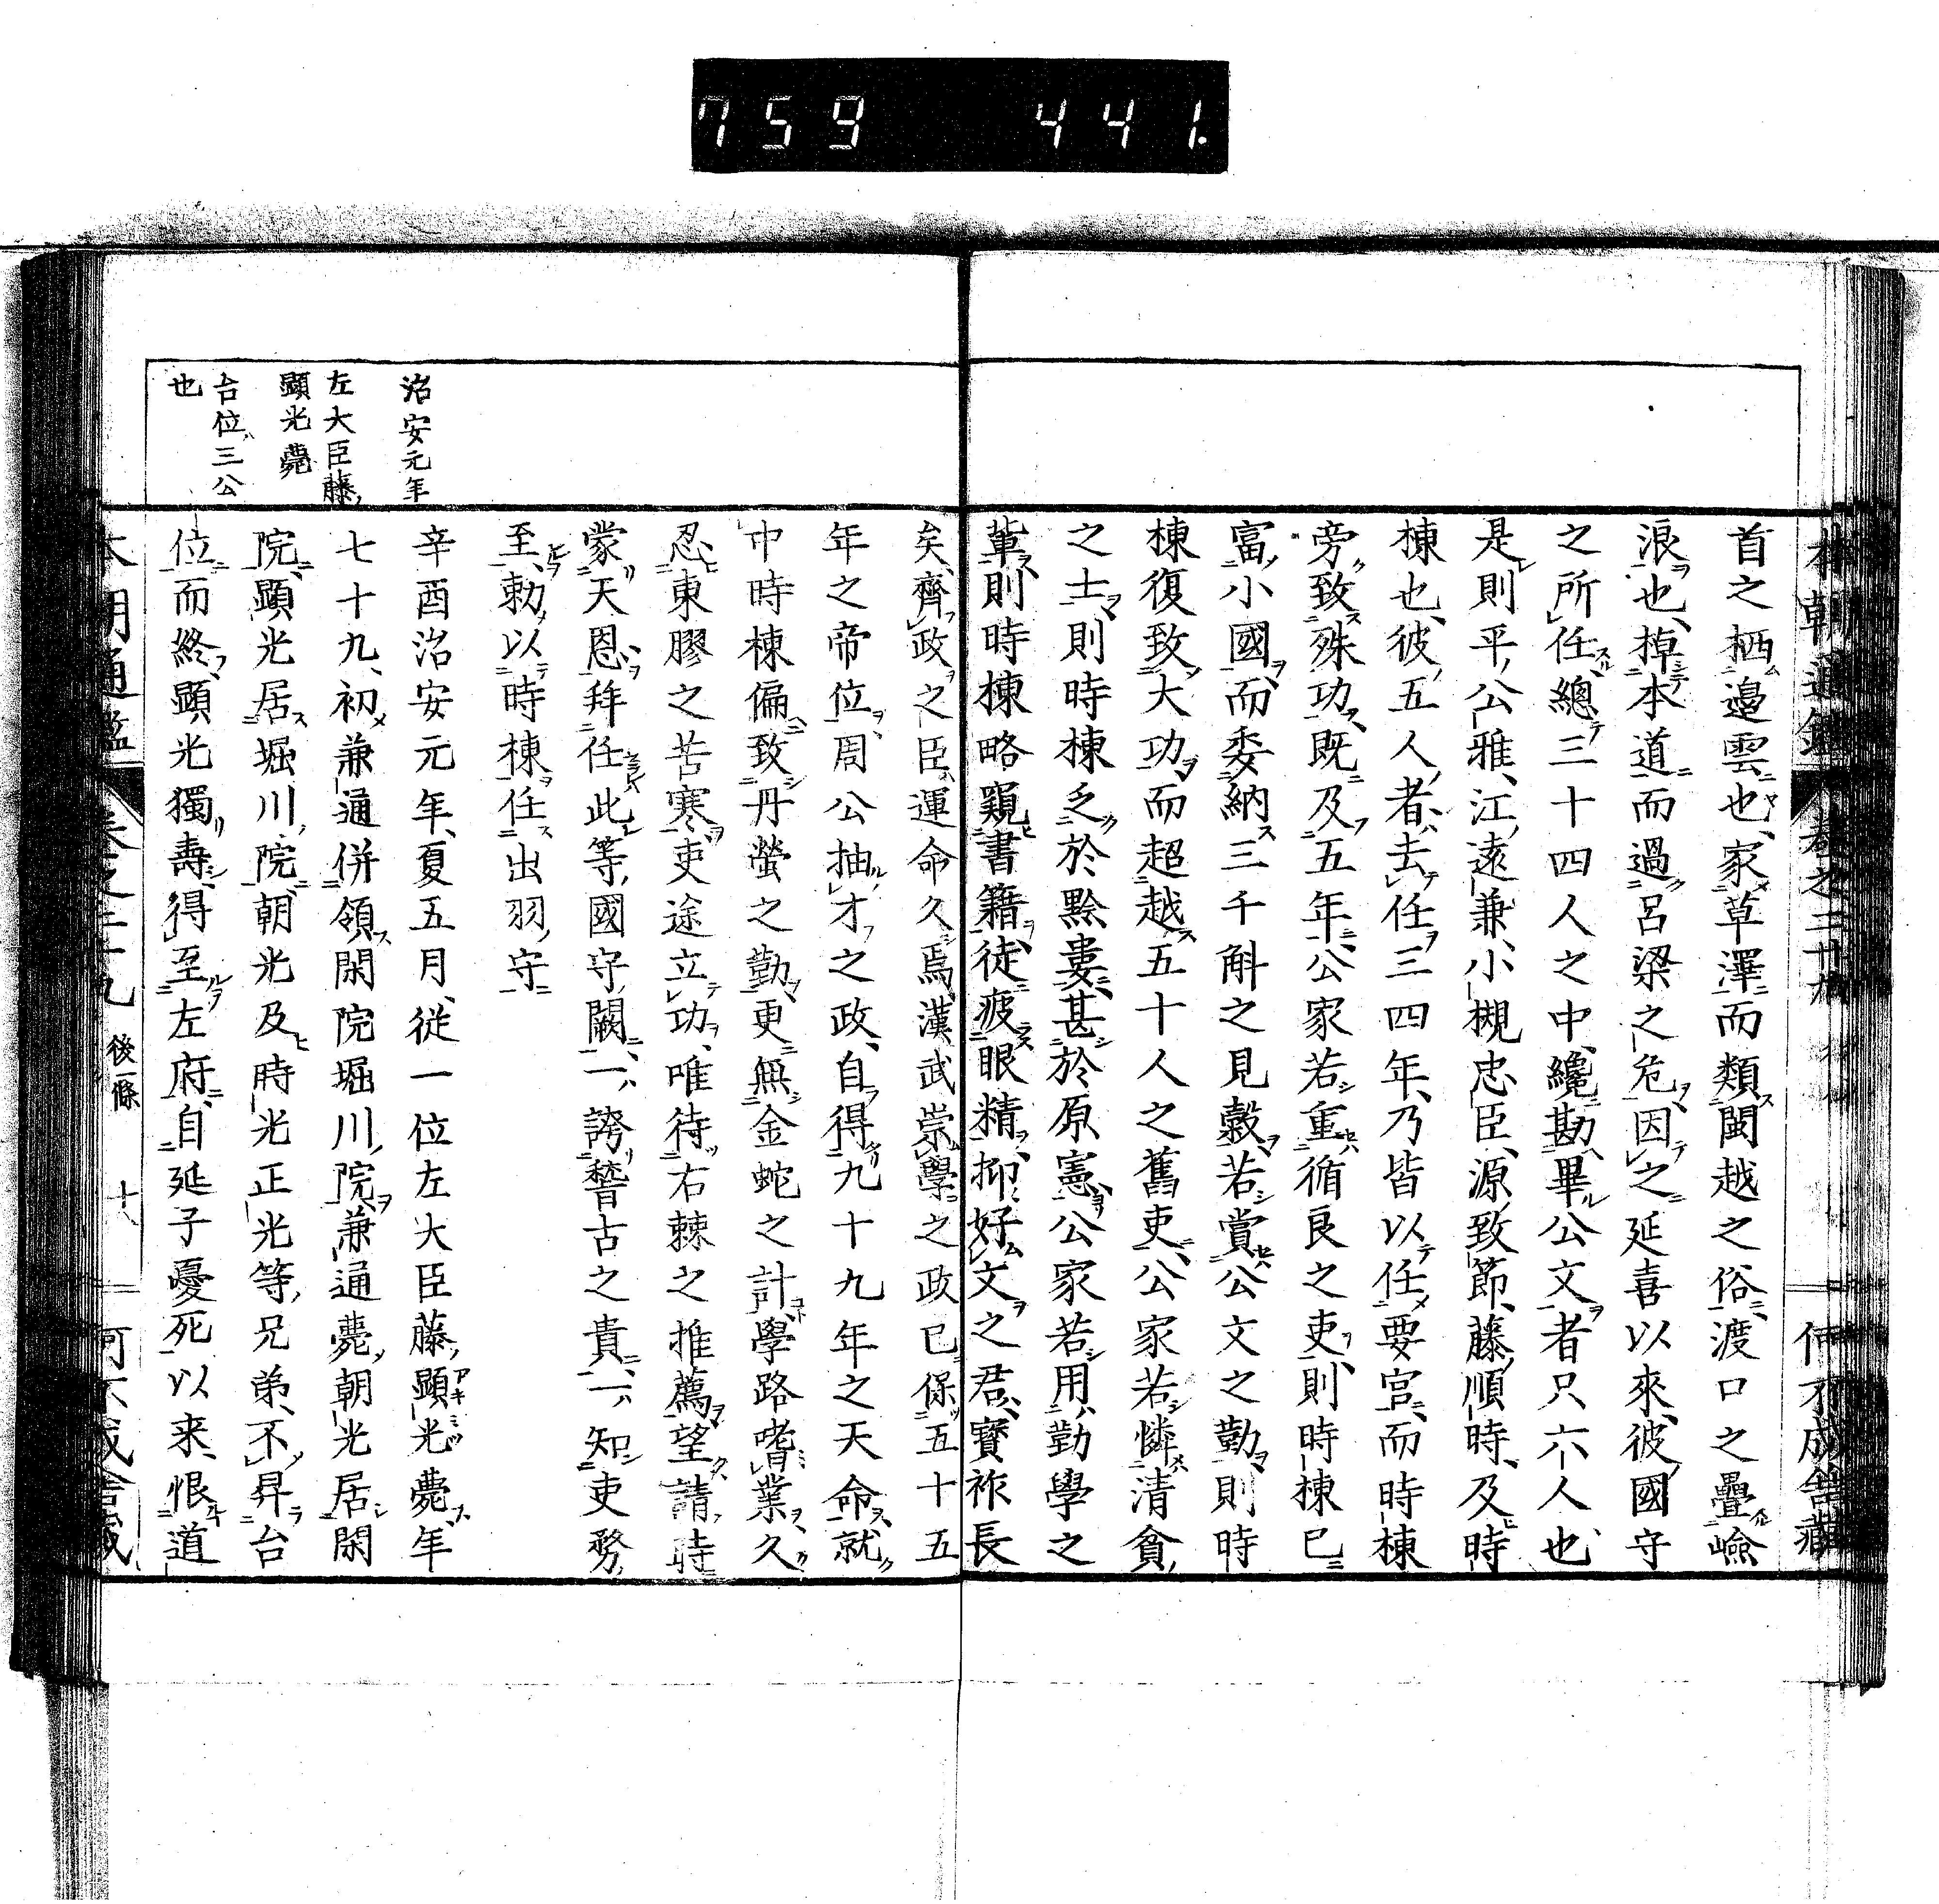 759 441.
本朝通鑑 卷之三十九
何不成舎藏
首之栖邉雲也、家草澤而類閩越之俗、渡口之疊嶮
浪也、掉本道而過呂梁之危、因之延喜以來、彼國守
之所任、總三十四人之中、纔勘畢公文者只六人也、
是則平公雅、江遠兼、小槻忠臣、源致節、藤順時、及時
棟也、彼五人者、去任三四年、乃皆以任要官、而時棟
旁致殊功、既及五年、公家若重循良之吏、則時棟已
富小國、而委納三千斛之見穀、若賞公文之勤、則時
棟復致大功、而超越五十人之舊吏、公家若憐清貧
之士、則時棟乏於黔婁、甚於原憲、公家若用勤學之
輩、則時棟略窺書籍、徒疲眼精、抑好文之君、寳祚長
矣、齊政之臣、運命久焉、漢武崇學之政已保五十五
年之帝位、周公抽才之政、自得九十九年之天命、就
中時棟偏致丹螢之勤、更無金蛇之計、學路嗜業、久
忍東膠之苦寒、吏途立功、唯待右棘之推薦、望請時
蒙天恩、拜任此等國守闕、一誇嵆古之貴、一知吏務
至、勅以時棟任出羽守
治安元年
辛酉治安元年、夏五月、從一位左大臣藤顯光薨、年
左大臣藤
顯光薨
七十九、初兼通併領閑院堀川院、兼通薨、朝光居閑
院、顯光居堀川院、朝光及時光正光等兄弟、不昇台
台位三公
也
位而終、顯光獨壽、得至左府、自延子憂死以来、恨道
本朝通鑑 卷之三十九 後一條 十八
何不成舎藏